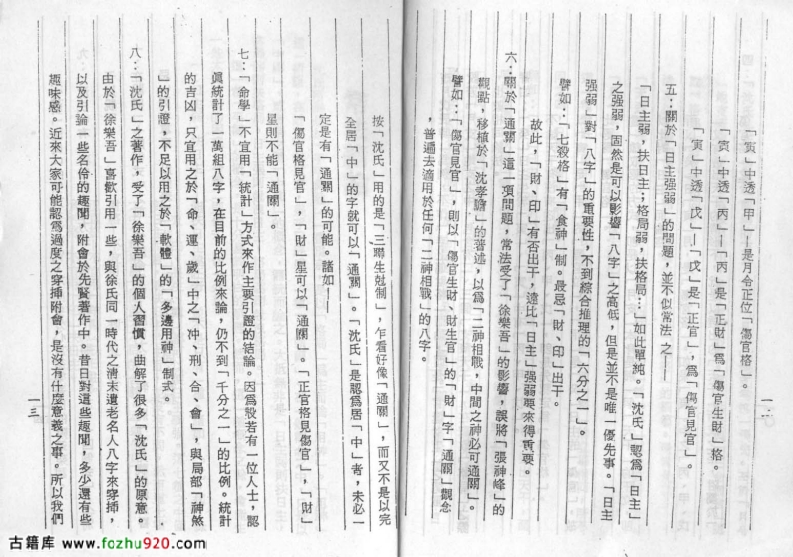 「寅」中透「甲」—是月令正位「傷官格」。
「寅」中透「丙」—「丙」是「正財」爲「傷官生財」格。
「寅」中透「戊」—「戊」是「正官」，爲「傷官見官」。
五：關於「日主强弱」的問題，並不似常法 之——
「日主弱，扶日主；格局弱，扶格局…」如此單純。「沈氏」認爲「日主」
之强弱，固然是可以影響「八字」之高低，但是並不是唯一優先事。「日主
强弱」對「八字」的重要性，不到綜合推理的「六分之一」。
譬如：「七殺格」有「食神」制。最忌「財、印」出干。
故此，「財、印」有否出干，遠比「日主」强弱要來得重要。
六：關於「通關」這一項問題，常法受了「徐樂吾」的影響，誤將「張神峰」的
觀點，移植於「沈孝瞻」的著述，以爲「二神相戰，中間之神必可通關」。
譬如：「傷官見官」，則以「傷官生財、財生官」的「財」字「通關」觀念
，普遍去適用於任何「二神相戰」的八字。
一二
按「沈氏」用的是「三羂生尅制」，乍看好像「通關」，而又不是以完
全居「中」的字就可以「通關」。「沈氏」是認爲居「中」者，未必一
定是有「通關」的可能。諸如——
「傷官格見官」，「財」星可以「通關」。「正官格見傷官」，「財」
星則不能「通關」。
七：「命學」不宜用「統計」方式來作主要引證的結論。因爲設若有一位人士，認
眞統計了一萬組八字，在目前的比例來論，仍不到「千分之一」的比例。統計
的吉凶，只宜用之於「命、運、歲」中之「冲、刑、合、會」，與局部「神煞
」的引證，不足以用之於「軟體」的「多邊用神」制式。
八：「沈氏」之著作，受了「徐樂吾」的個人習慣，曲解了很多「沈氏」的原意。
由於「徐樂吾」喜歡引用一些，與徐氏同一時代之清末遺老名人八字來穿揷，
以及引論一些名伶的趣聞，附會於先賢著作中。昔日對這些趣聞，多少還有些
趣味感。近來大家可能認爲過度之穿揷附會，是沒有什麼意義之事。所以我們
一三
古籍库 www.fozhu920.com